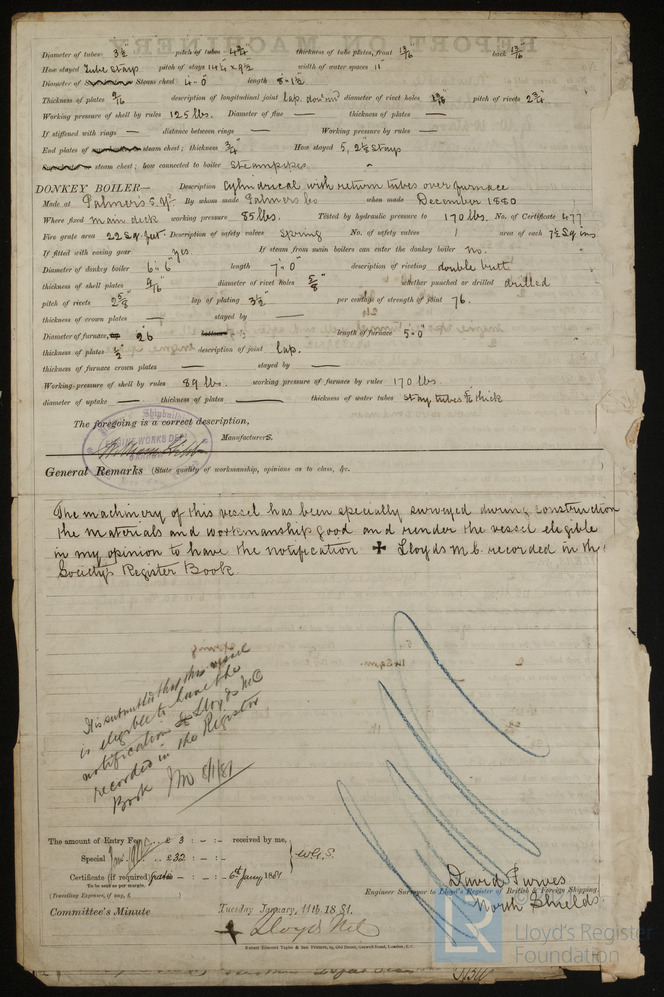 Diameter of tubes 3½ pitch of tubes 4¾ thickness of tube plates, front 13/16 back 13/16
How stayed tube stays pitch of stays 14¼ x 9½ width of water spaces 11"
Diameter of Steam chest 4-0" length 8-1½
Thickness of plates 9/16 description of longitudinal joint lap, diameter of rivet holes pitch of rivets 2¾
Working pressure of shell by rules 125 lbs. Diameter of flue — thickness of plates —
If stiffened with rings — distance between rings — Working pressure by rules —
End plates of steam chest; thickness ¾" How stayed 5, 2½ stays
steam chest; how connected to boiler Steampipes
DONKEY BOILER— Description Cylindrical with return tubes over furnace
Made at Palmers By whom made Palmers Co when made December 1880
Where fixed main deck working pressure 85 lbs. Tested by hydraulic pressure to 170 lbs. No. of Certificate 477
Fire grate area 22 Sq. feet. Description of safety valves Spring No. of safety valves 1 area of each 7½ Sq ins
If fitted with easing gear yes. If steam from main boilers can enter the donkey boiler no.
Diameter of donkey boiler 6'6" length 7'0" description of riveting double butt
thickness of shell plates 9/16 diameter of rivet holes 5/8" whether punched or drilled drilled
pitch of rivets 2⅝" lap of plating 3½" per centage of strength of joint 76.
thickness of crown plates — stayed by —
Diameter of furnace, 2'6 length of furnace 5-0"
thickness of plates ½" description of joint lap.
thickness of furnace crown plates — stayed by —
Working pressure of shell by rules 89 lbs. working pressure of furnace by rules 170 lbs
diameter of uptake — thickness of plates — thickness of water tubes stay tubes thick
The foregoing is a correct description,
Shipbuilding
ENGINE WORKS DEPT
Manufacturers.
General Remarks (State quality of workmanship, opinions as to class, &c.
The machinery of this vessel has been specially surveyed during construction
the materials and workmanship good and render the vessel eligible
in my opinion to have the notification ✠ Lloyds M.C. recorded in the
Society's Register Book.
It is submitted that this vessel
is eligible to have the
notification ✠ Lloyds M.C
recorded in the Register
Book 8/1/81
The amount of Entry Fee .. £ 3 : - : - received by me,
Special .. £32 : - : - W.G.S.
Certificate (if required) : - : - 6th Jany 1881
To be sent as per margin.
(Travelling Expenses, if any, £ )
David Purves
Engineer Surveyor to Lloyd's Register of British & Foreign Shipping.
North Shields.
Committee's Minute Tuesday January, 11th 1881.
✠ Lloyds M.C.
LR Lloyd's Register
Foundation